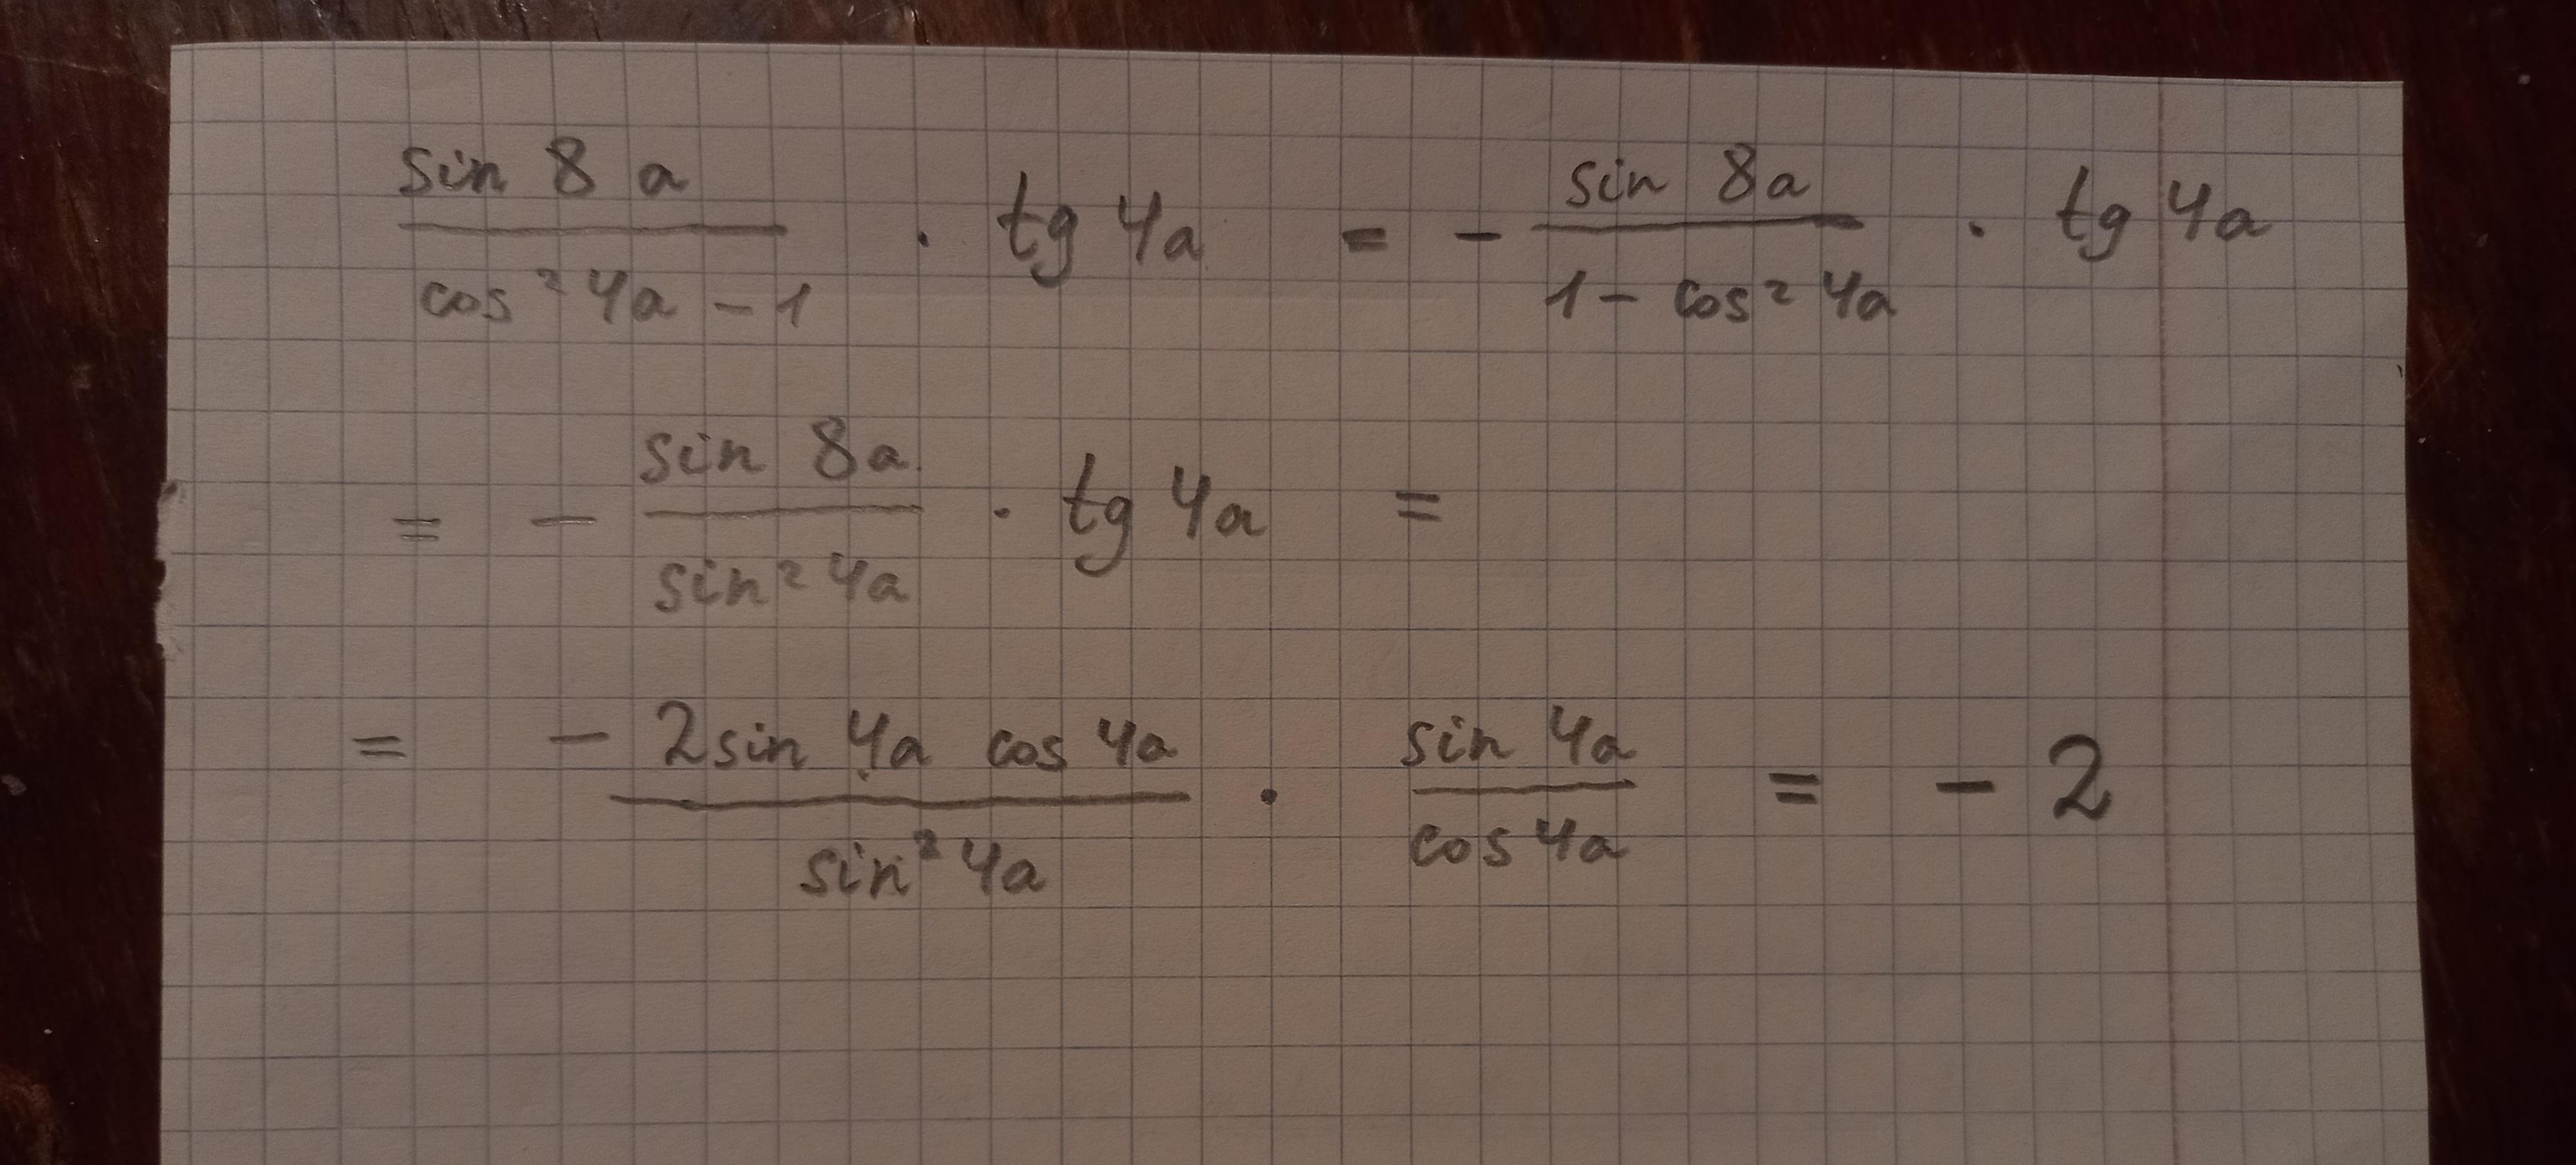 sin 8a / cos² 4a - 1 · tg 4a = - sin 8a / 1 - cos² 4a · tg 4a
= - sin 8a / sin² 4a · tg 4a =
= - 2sin 4a cos 4a / sin² 4a · sin 4a / cos 4a = - 2